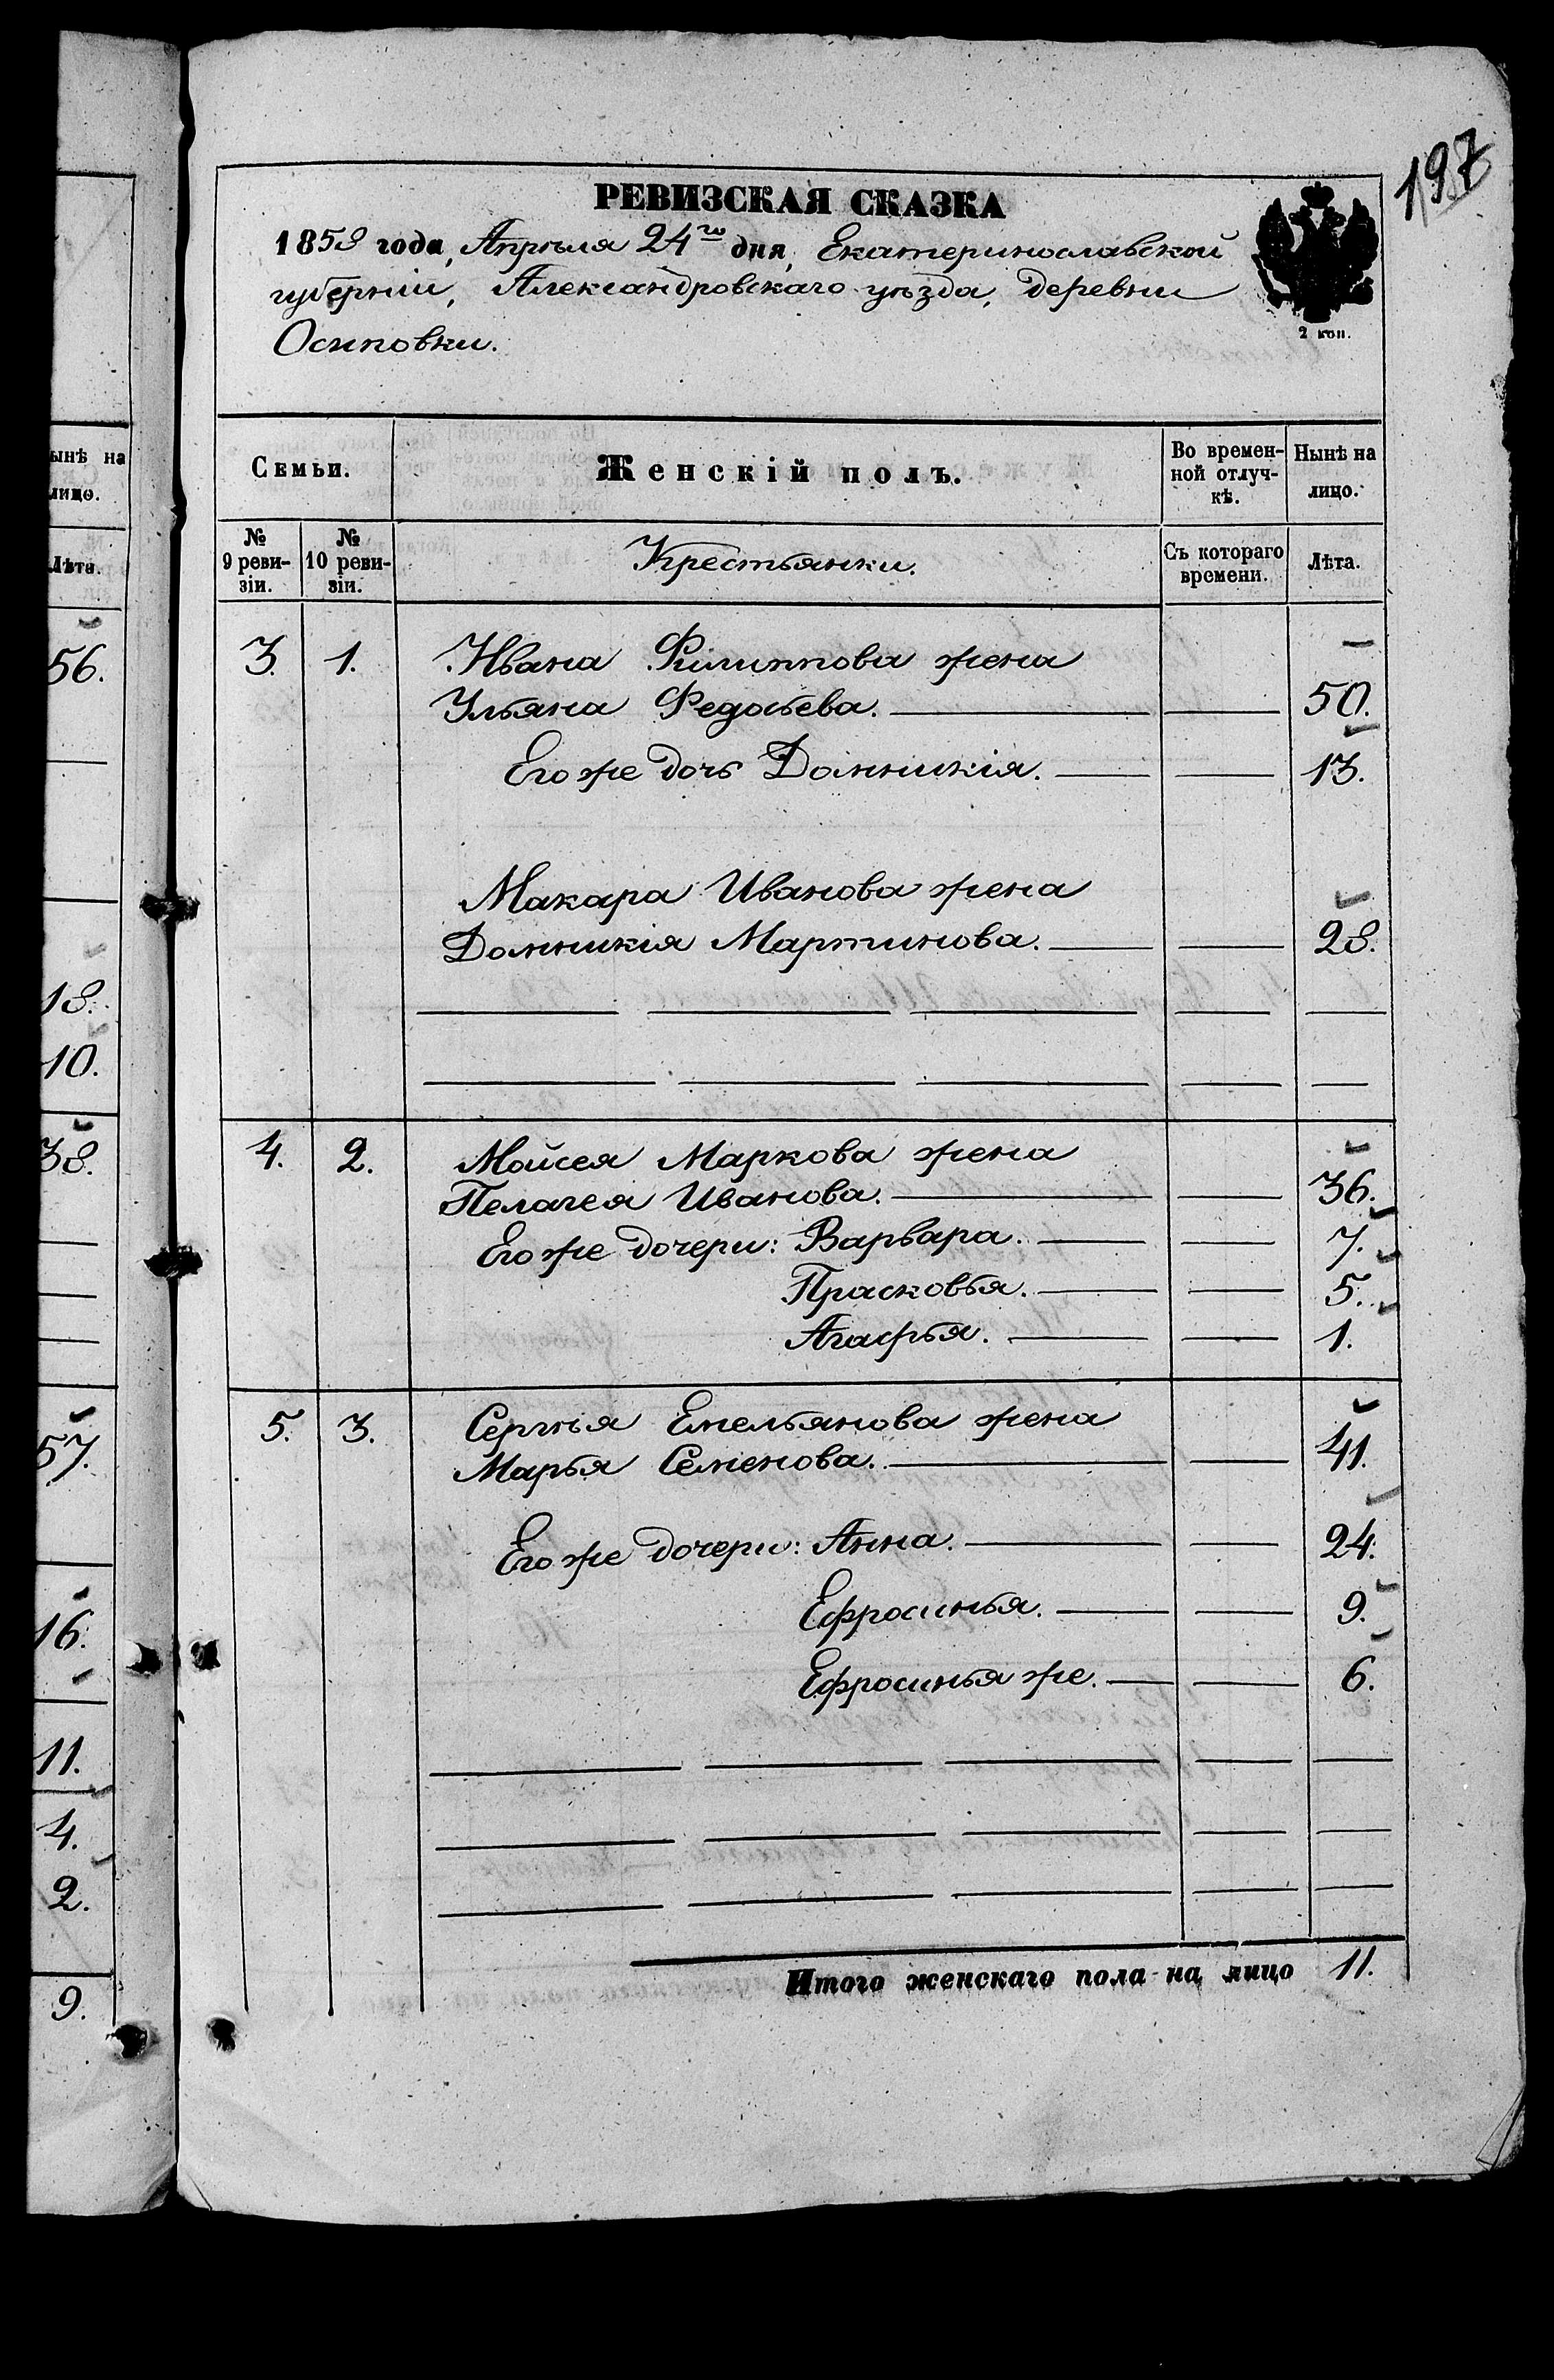 197
РЕВИЗСКАЯ СКАЗКА
1858 года, Апрѣля 24го дня, Екатеринославской
губерніи, Александровскаго уѣзда, деревни
Осиповки.
2 коп.
ынѣ на
лицо.
Лѣта.
56.
18.
10.
38.
57.
16.
11.
4.
2.
9.
Семьи.
Женскій полъ.
Во времен-
ной отлуч-
кѣ.
Нынѣ на
лицо.
№
9 реви-
зіи.
№
10 реви-
зіи.
Крестьянки.
Съ котораго
времени.
Лѣта.
3. 1. Ивана Филиппова жена
Ульяна Федосѣева. 50.
Его же дочь Домникія. 13.
Макара Иванова жена
Домникія Мартинова. 28.
4. 2. Мойсея Маркова жена
Пелагея Иванова. 36.
Его же дочери: Варвара. 7.
Прасковья. 5.
Агафья. 1.
5. 3. Сергѣя Емельянова жена
Марья Семенова. 41.
Его же дочери: Анна. 24.
Ефросинья. 9.
Ефросинья же. 6.
Итого женскаго пола на лицо 11.